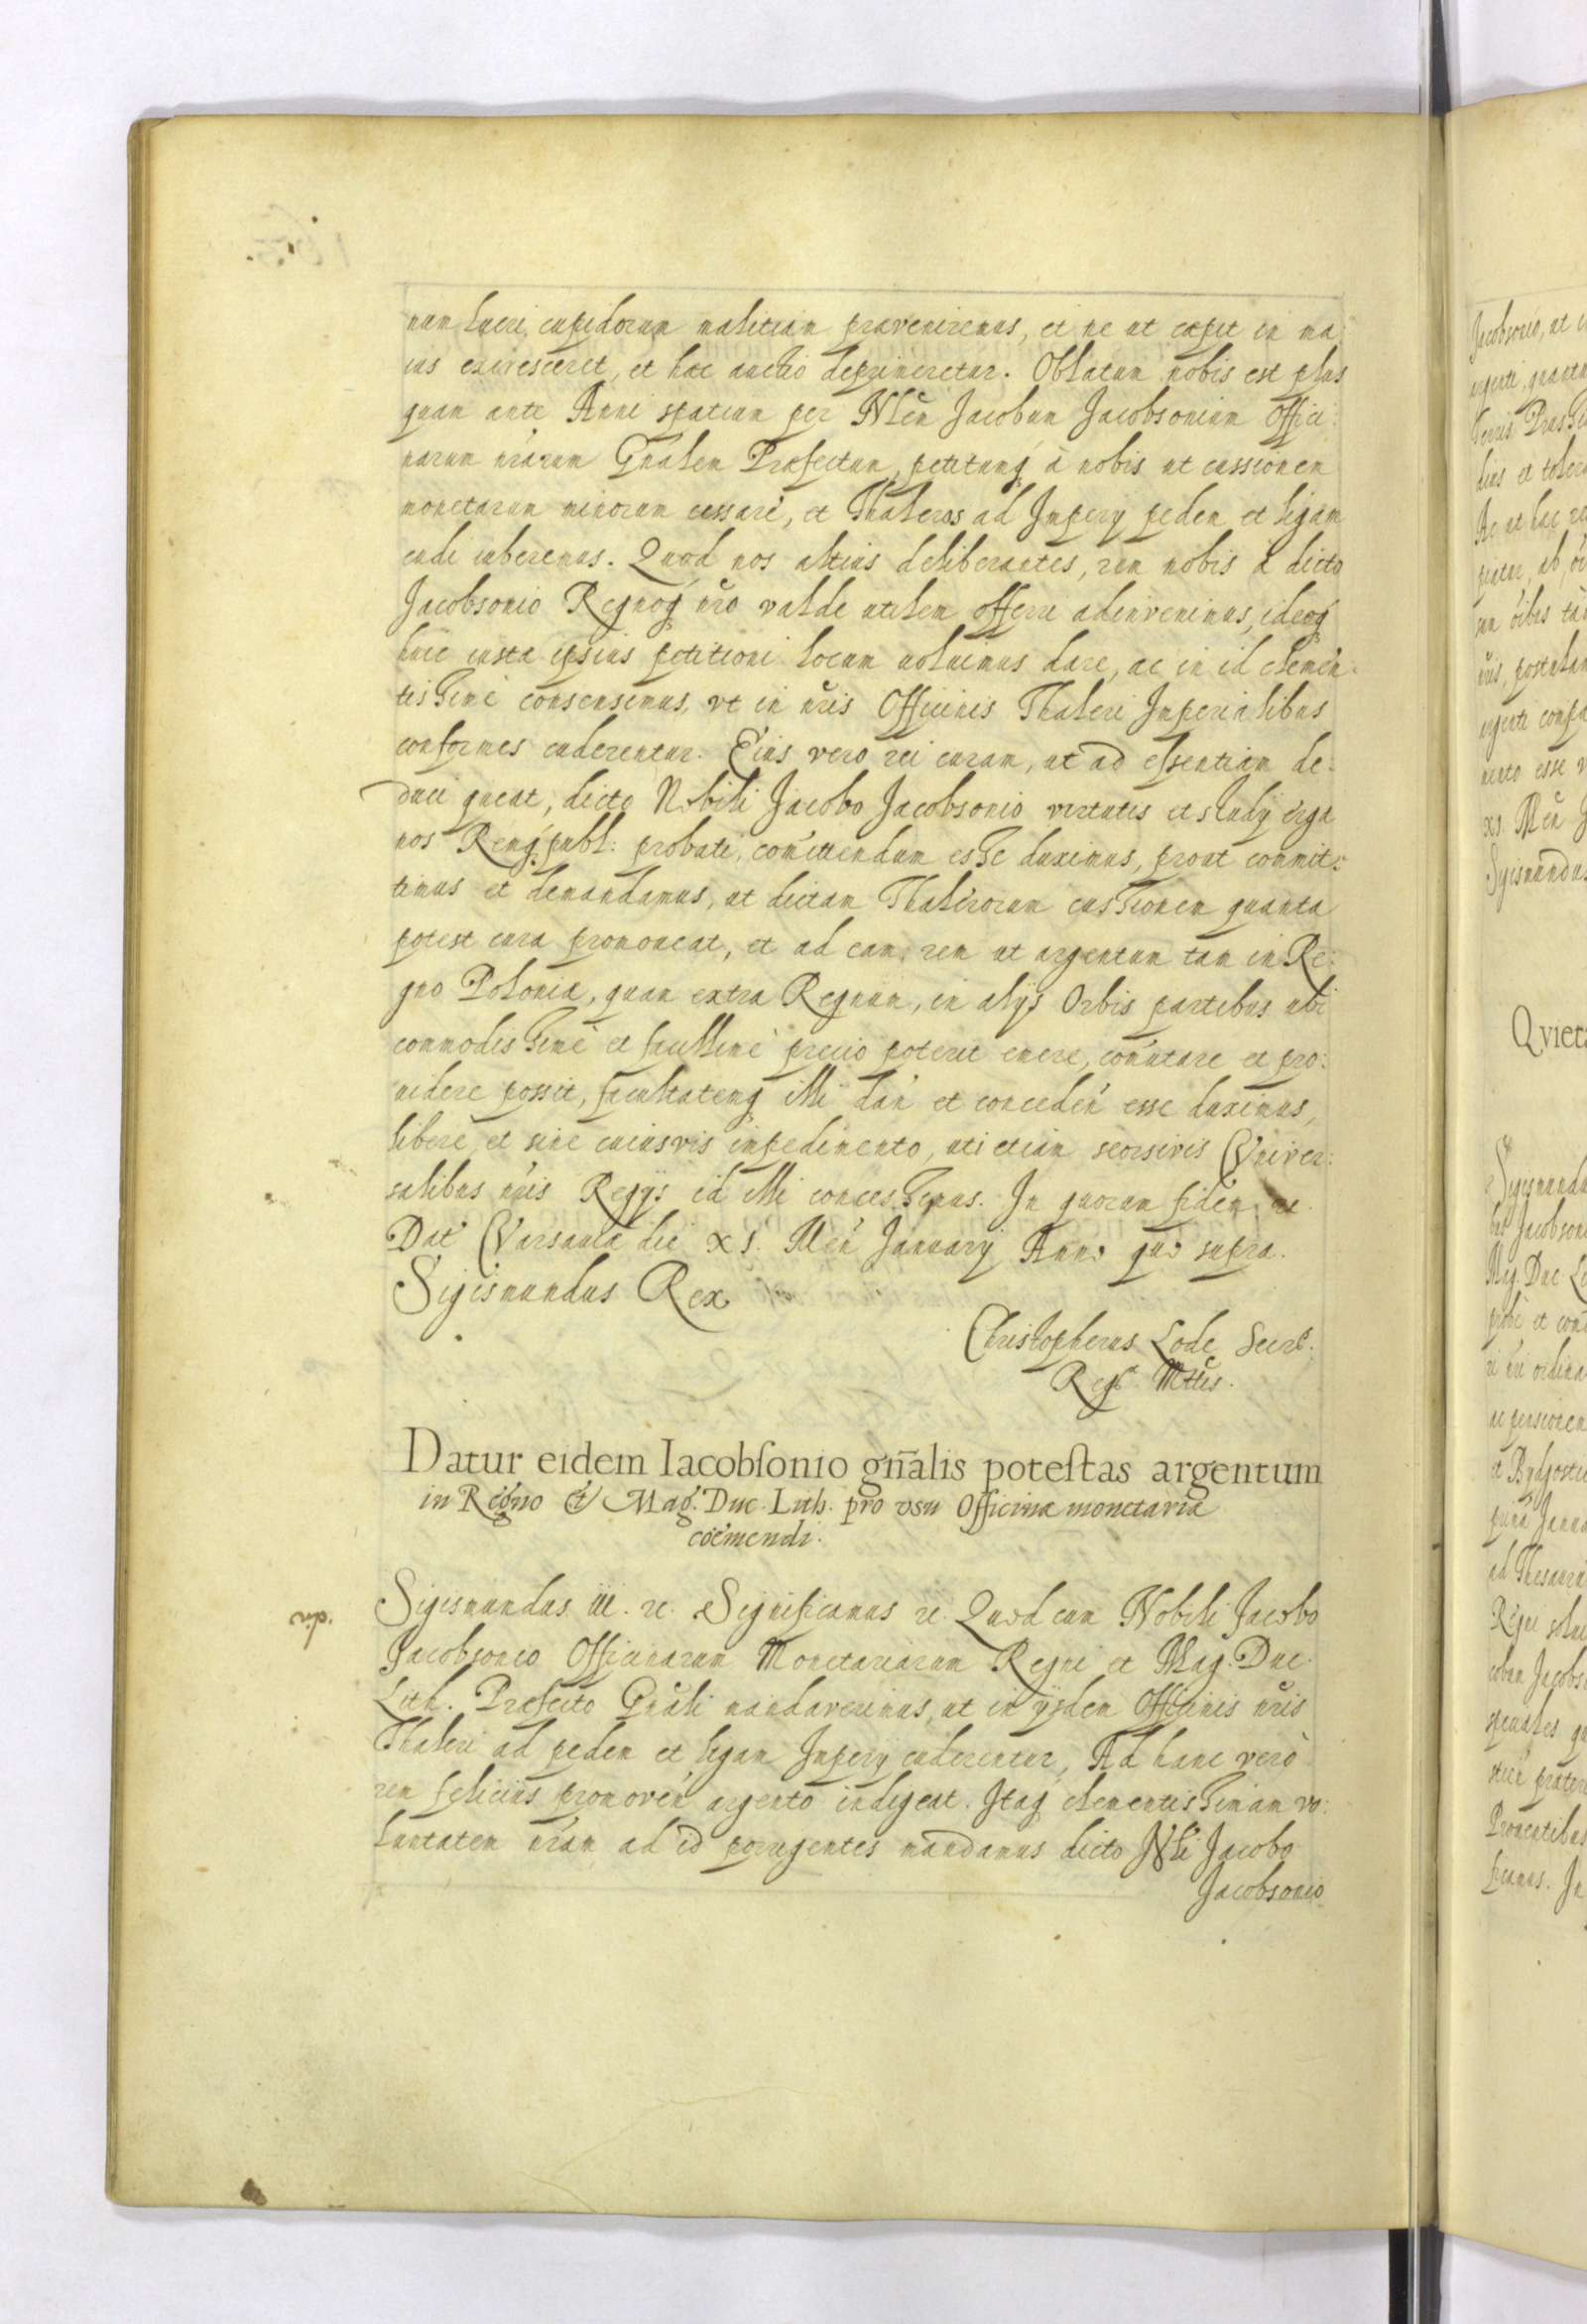 num lucri cupidorum malitiam praeveniremus, et ne ut caepit in ma:
ius excresceret, et hac auctio deprimeretur. Oblatum nobis est plus
quam ante Anni spatium per Nlem Jacobum Jacobsonium Offici:
narum nrarum Gnalem Praefectum, petitumq à nobis ut cussionem
monetarum minorum cessare, et Thaleros ad Impery pedem et ligam
cudi iuberemus. Quod nos altius deliberantes, rem nobis à dicto
Jacobsonio Regnoq nro valde utilem offerri adinvenimus, ideoq
huic iusta ipsius petitioni locum uoluimus dare, ac in id clemen:
tissimè consensimus, vt in nris Officinis Thaleri Imperialibus
conformes cuderentur. Eius vero rei curam, ut ad essentiam de:
duci queat, dicto Nobili Jacobo Jacobsonio virtutis et study erga
nos Remq publ: probati, comittendum esse duximus, prout commit:
timus et demandamus, ut dictam Thalerorum cussionem quanta
potest cura promoueat, et ad eam rem ut argentum tam in Re:
gno Poloniæ, quam extra Regnum, in alijs Orbis partibus ubi
commodissimè et facillimè precio poterit emere, comutare et pro:
uidere possit, facultatemq illi dan et conceden esse duximus,
liberè et sine cuiusvis impedimento, uti etiam seorsivis Vniver:
salibus nris Regijs id illi concessimus. In quorum fidem etc.
Dat Varsauiæ die XI. Men January Anno quo supra.
Sigismundus Rex
Christopherus Lode Secrs.
Regæ Mttis.
Datur eidem Iacobſonio gn̄alis poteſtas argentum
in Regno & Mag. Duc. Lith. pro vsu Officinæ monetariæ
coëmendi.
Sigismundus III. etc. Significamus etc. Quod cum Nobili Jacobo
Jacobsonio Officinarum Monetariarum Regni et Mag. Duc.
Lith. Præfecto Gnali mandaverimus, ut in ijsdem Officinis nris
Thaleri ad pedem et ligam Impery cuderentur, Ad hanc verò
rem feliciùs promoven argento indigeat. Itaq clementissimam vo:
luntatem nram ad id porrigentes mandamus dicto Nli Jacobo
Jacobsonio